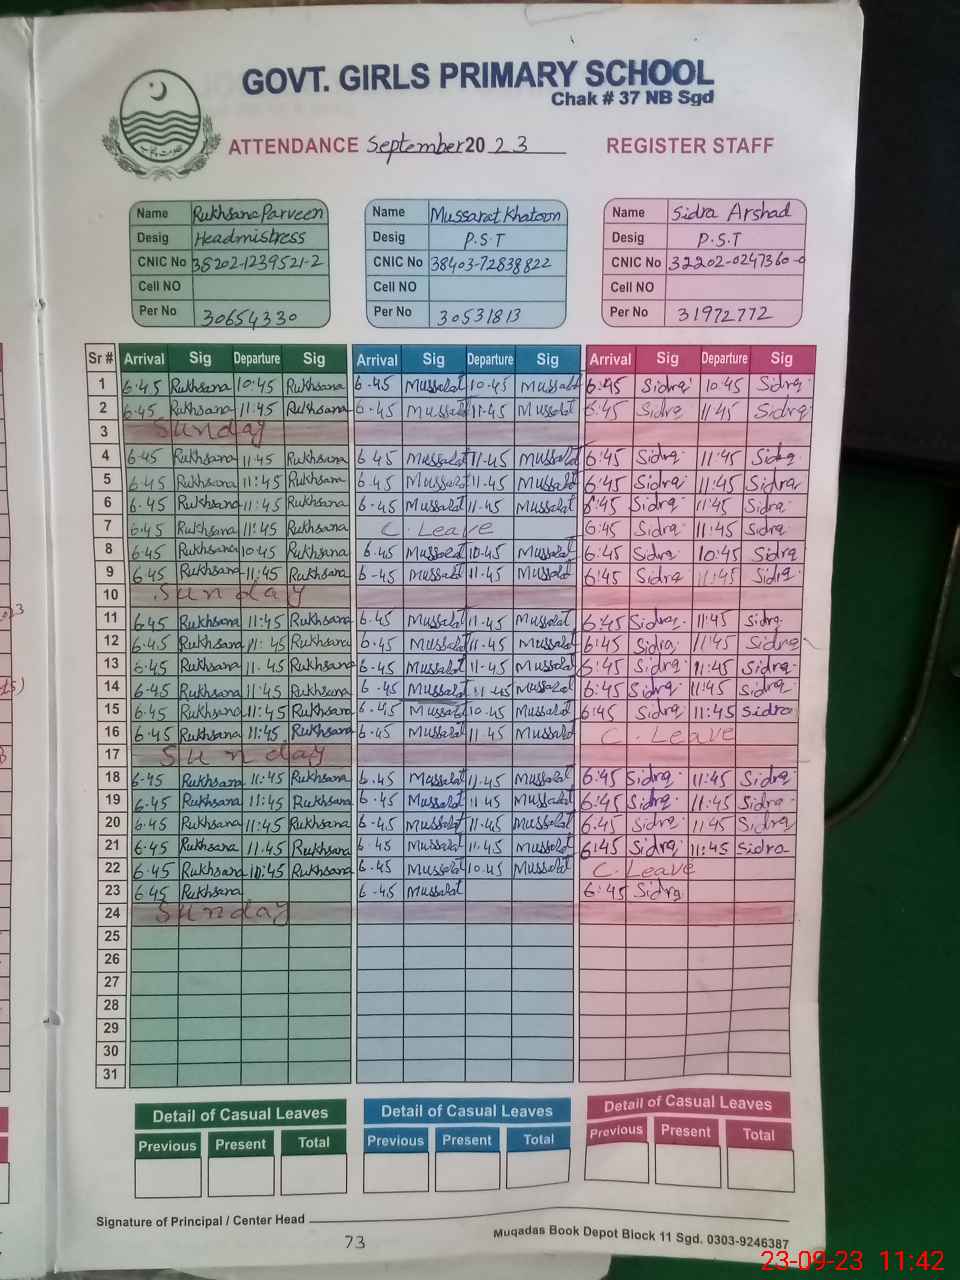 GOVT. GIRLS PRIMARY SCHOOL
Chak # 37 NB Sgd
ATTENDANCE September 2023 REGISTER STAFF
Name Rukhsana Parveen Name Mussarat Khatoon Name Sidra Arshad
Desig Headmistress Desig P.S.T Desig P.S.T
CNIC No 38202-1239521-2 CNIC No 38403-72838822 CNIC No 32202-0247360-0
Cell NO Cell NO Cell NO
Per No 30654330 Per No 30531813 Per No 31972772
Sr # Arrival Sig Departure Sig Arrival Sig Departure Sig Arrival Sig Departure Sig
1 6.45 Rukhsana 10:45 Rukhsana 6.45 Mussalat 10.45 Mussalat 6:45 Sidra 10:45 Sidra
2 6.45 Rukhsana 11:45 Rukhsana 6.45 Mussalat 11.45 Mussalat 6:45 Sidra 11:45 Sidra
3 Sunday
4 6.45 Rukhsana 11:45 Rukhsana 6.45 Mussalat 11.45 Mussalat 6:45 Sidra 11:45 Sidra
5 6.45 Rukhsana 11:45 Rukhsana 6.45 Mussalat 11.45 Mussalat 6:45 Sidra 11:45 Sidra
6 6.45 Rukhsana 11:45 Rukhsana 6.45 Mussalat 11.45 Mussalat 6:45 Sidra 11:45 Sidra
7 6.45 Rukhsana 11:45 Rukhsana C. Leave 6:45 Sidra 11:45 Sidra
8 6.45 Rukhsana 10:45 Rukhsana 6.45 Mussalat 10.45 Mussalat 6:45 Sidra 10:45 Sidra
9 6.45 Rukhsana 11:45 Rukhsana 6.45 Mussalat 11.45 Mussalat 6:45 Sidra 11:45 Sidra
10 Sunday
11 6.45 Rukhsana 11:45 Rukhsana 6.45 Mussalat 11.45 Mussalat 6:45 Sidra 11:45 Sidra
12 6.45 Rukhsana 11:45 Rukhsana 6.45 Mussalat 11.45 Mussalat 6:45 Sidra 11:45 Sidra
13 6.45 Rukhsana 11.45 Rukhsana 6.45 Mussalat 11.45 Mussalat 6:45 Sidra 11:45 Sidra
14 6.45 Rukhsana 11:45 Rukhsana 6.45 Mussalat 11.45 Mussalat 6:45 Sidra 11:45 Sidra
15 6.45 Rukhsana 11:45 Rukhsana 6.45 Mussalat 10.45 Mussalat 6:45 Sidra 11:45 Sidra
16 6.45 Rukhsana 11:45 Rukhsana 6.45 Mussalat 11.45 Mussalat C. Leave
17 Sunday
18 6.45 Rukhsana 11:45 Rukhsana 6.45 Mussalat 11.45 Mussalat 6:45 Sidra 11:45 Sidra
19 6.45 Rukhsana 11:45 Rukhsana 6.45 Mussalat 11.45 Mussalat 6:45 Sidra 11:45 Sidra
20 6.45 Rukhsana 11:45 Rukhsana 6.45 Mussalat 11.45 Mussalat 6.45 Sidra 11:45 Sidra
21 6.45 Rukhsana 11.45 Rukhsana 6.45 Mussalat 11.45 Mussalat 6:45 Sidra 11:45 Sidra
22 6.45 Rukhsana 10:45 Rukhsana 6.45 Mussalat 10.45 Mussalat C. Leave
23 6.45 Rukhsana 6.45 Mussalat 6:45 Sidra
24 Sunday
25
26
27
28
29
30
31
Detail of Casual Leaves Detail of Casual Leaves Detail of Casual Leaves
Previous Present Total Previous Present Total Previous Present Total
Signature of Principal / Center Head
Muqadas Book Depot Block 11 Sgd. 0303-9246387
73
23-09-23 11:42